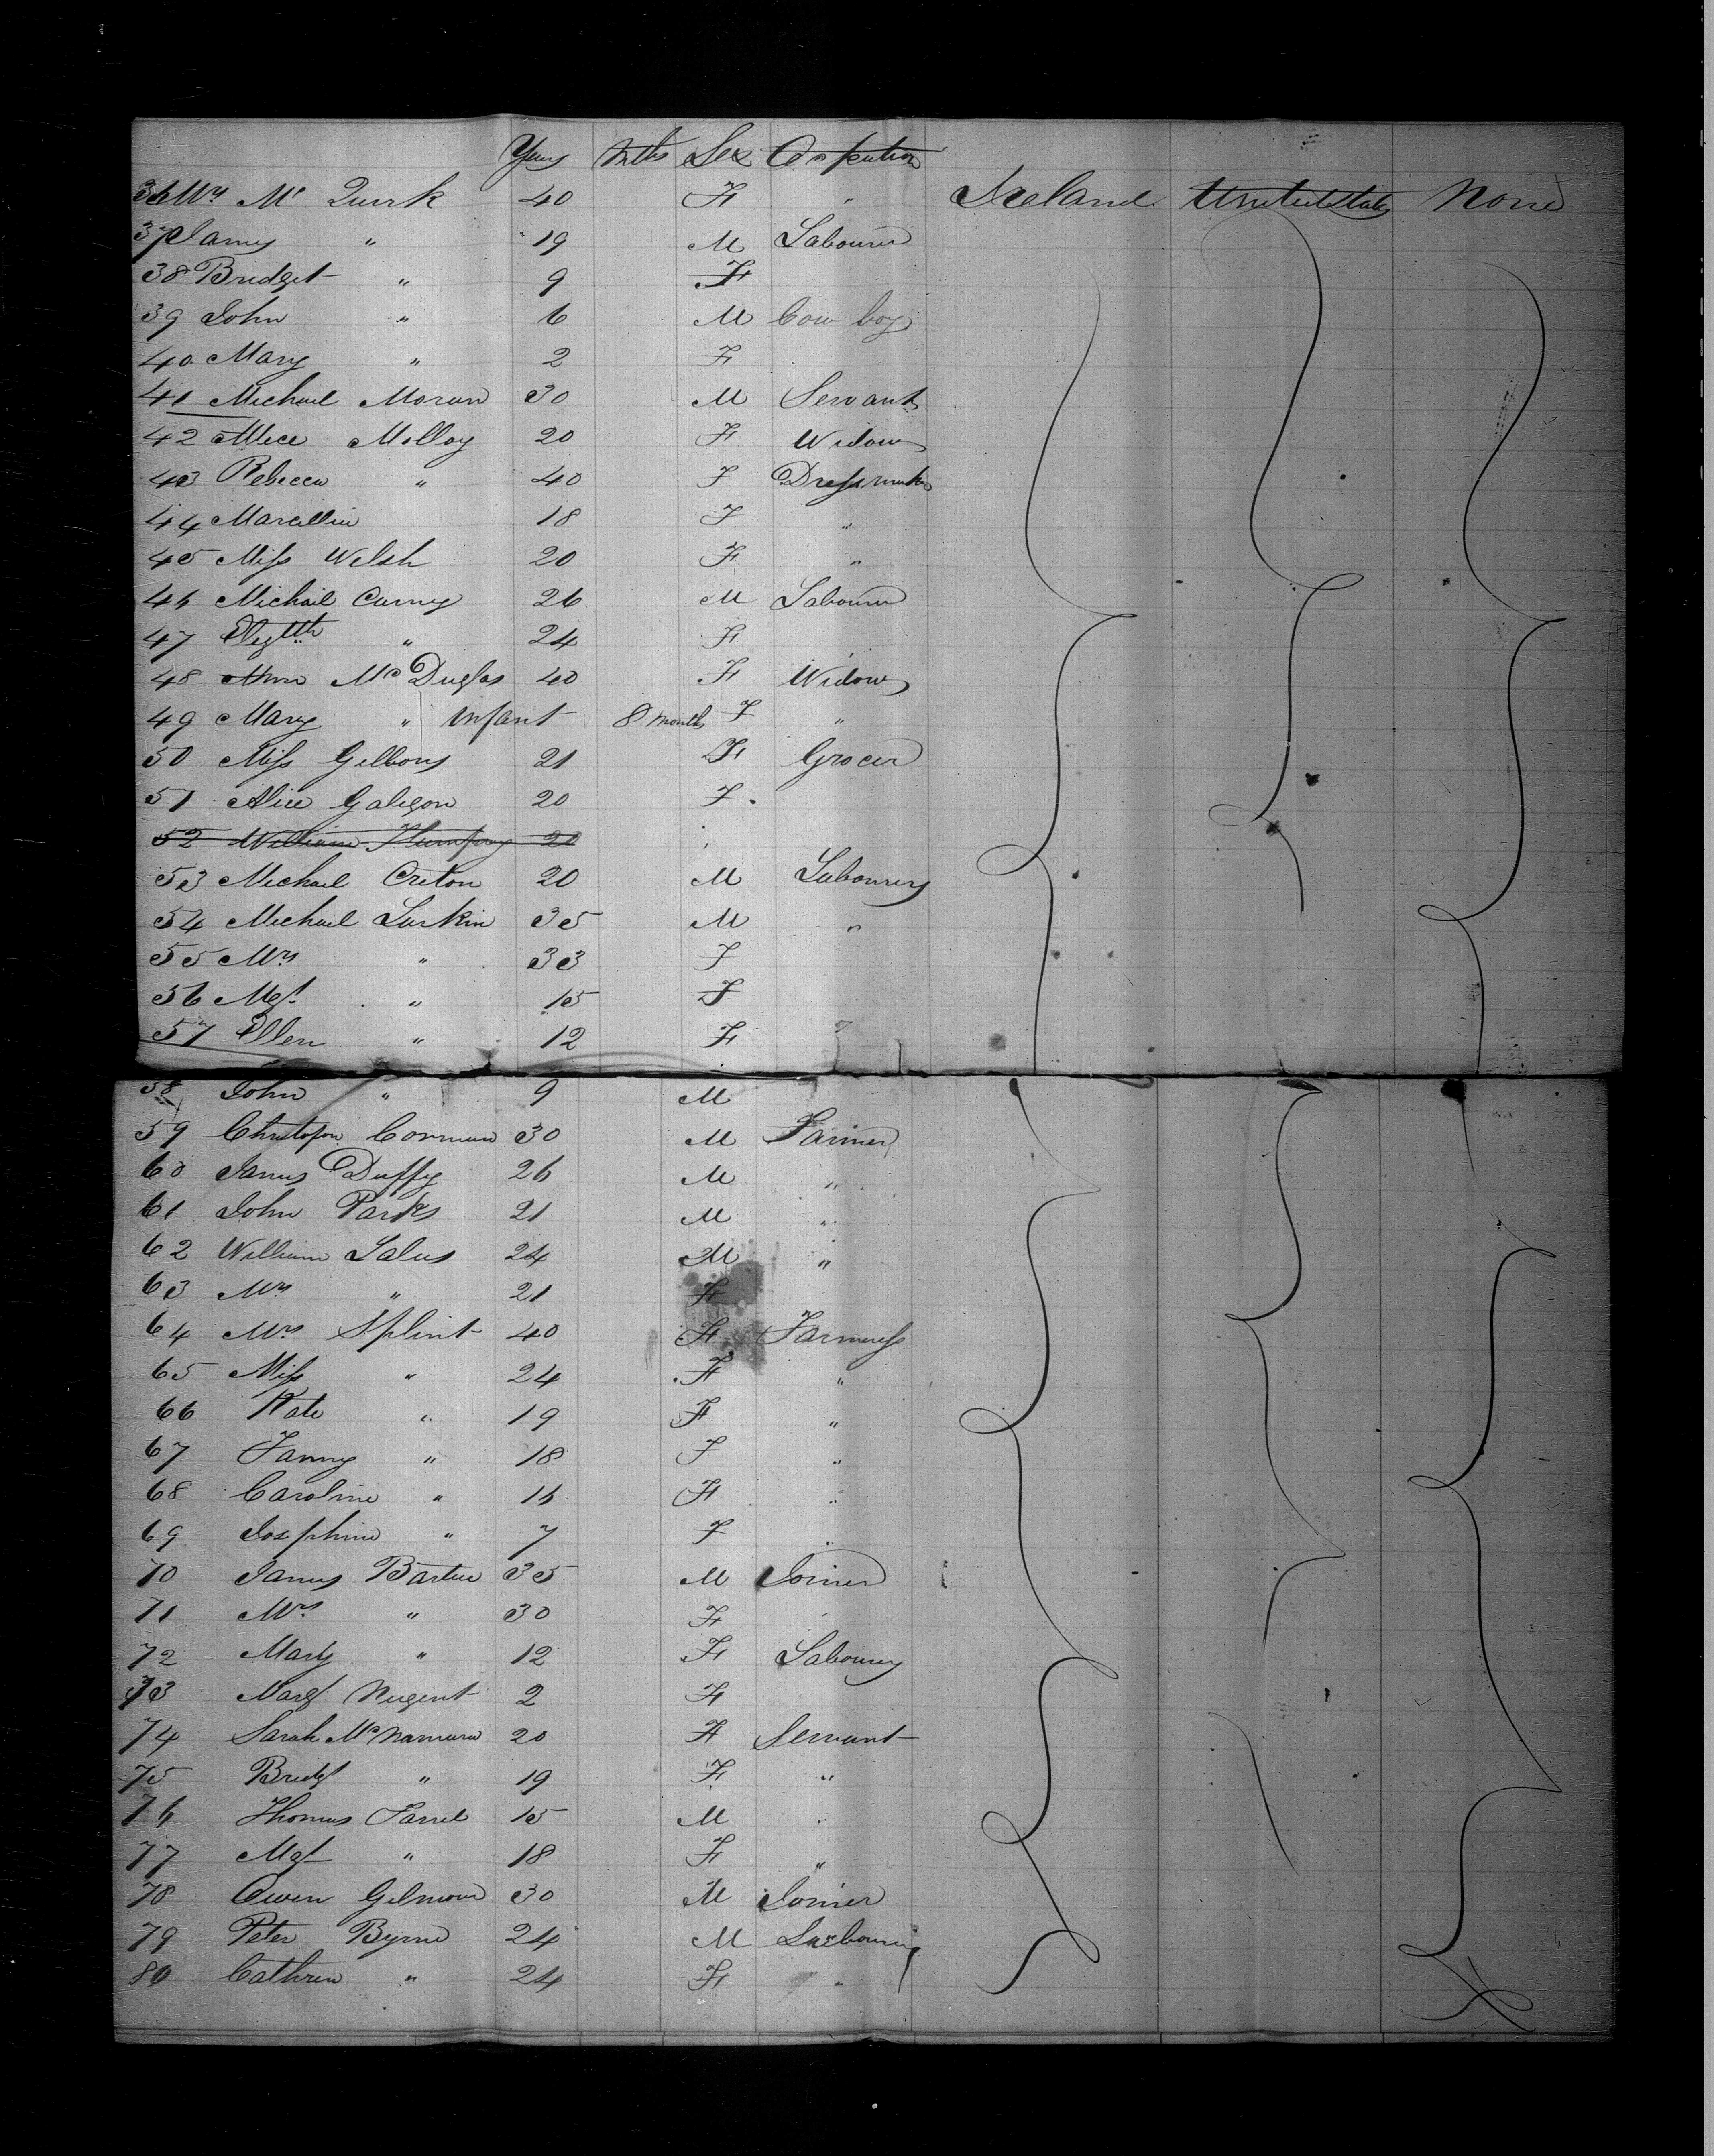 Years Mths Sex Occpation
36 Mrs Mc Quirk 40 F " Ireland United States None
37 James " 19 M Labourer
38 Bridget " 9 F
39 John " 6 M Cow boy
40 Mary " 2 F
41 Michael Moran 30 M Servant
42 Alice Molloy 20 F Widow
43 Rebecca " 40 F Dressmaker
44 18 F "
45 Miss Welsh 20 F "
46 Michail Carney 26 M Labourer
47 " 24 F
48 Ann Mc Duglas 40 F Widow
49 Mary " infant 8 months F "
50 Miss Gelbons 21 F Grocer
51 Alice Galegon 20 F
52 William 20
53 Michael Creton 20 M Labourers
54 Michael Larkin 35 M "
55 Mrs " 33 F
56 Mgt " 15 F
57 Ellen " 12 F
58 John " 9 M
59 30 M Farmer
60 James Duffy 26 M "
61 John Parks 21 M "
62 William Lalus 24 M "
63 Mrs " 21 F
64 Mrs Splint 40 F Farmeress
65 Miss " 24 F "
66 Kate " 19 F "
67 Fanny " 18 F "
68 Caroline " 16 F "
69 Josephine " 7 F "
70 James 35 M Joiner
71 Mrs " 30 F
72 Mary " 12 F Labourers
73 Margt Nugent 2 F
74 Sarah Mc Namara 20 F Servant
75 Bridgt " 19 F "
76 Thomas Farrel 15 M "
77 Mgt " 18 F "
78 Owen Gilmour 30 M Joiner
79 Peter Byrne 24 M
80 Cathren " 24 F "